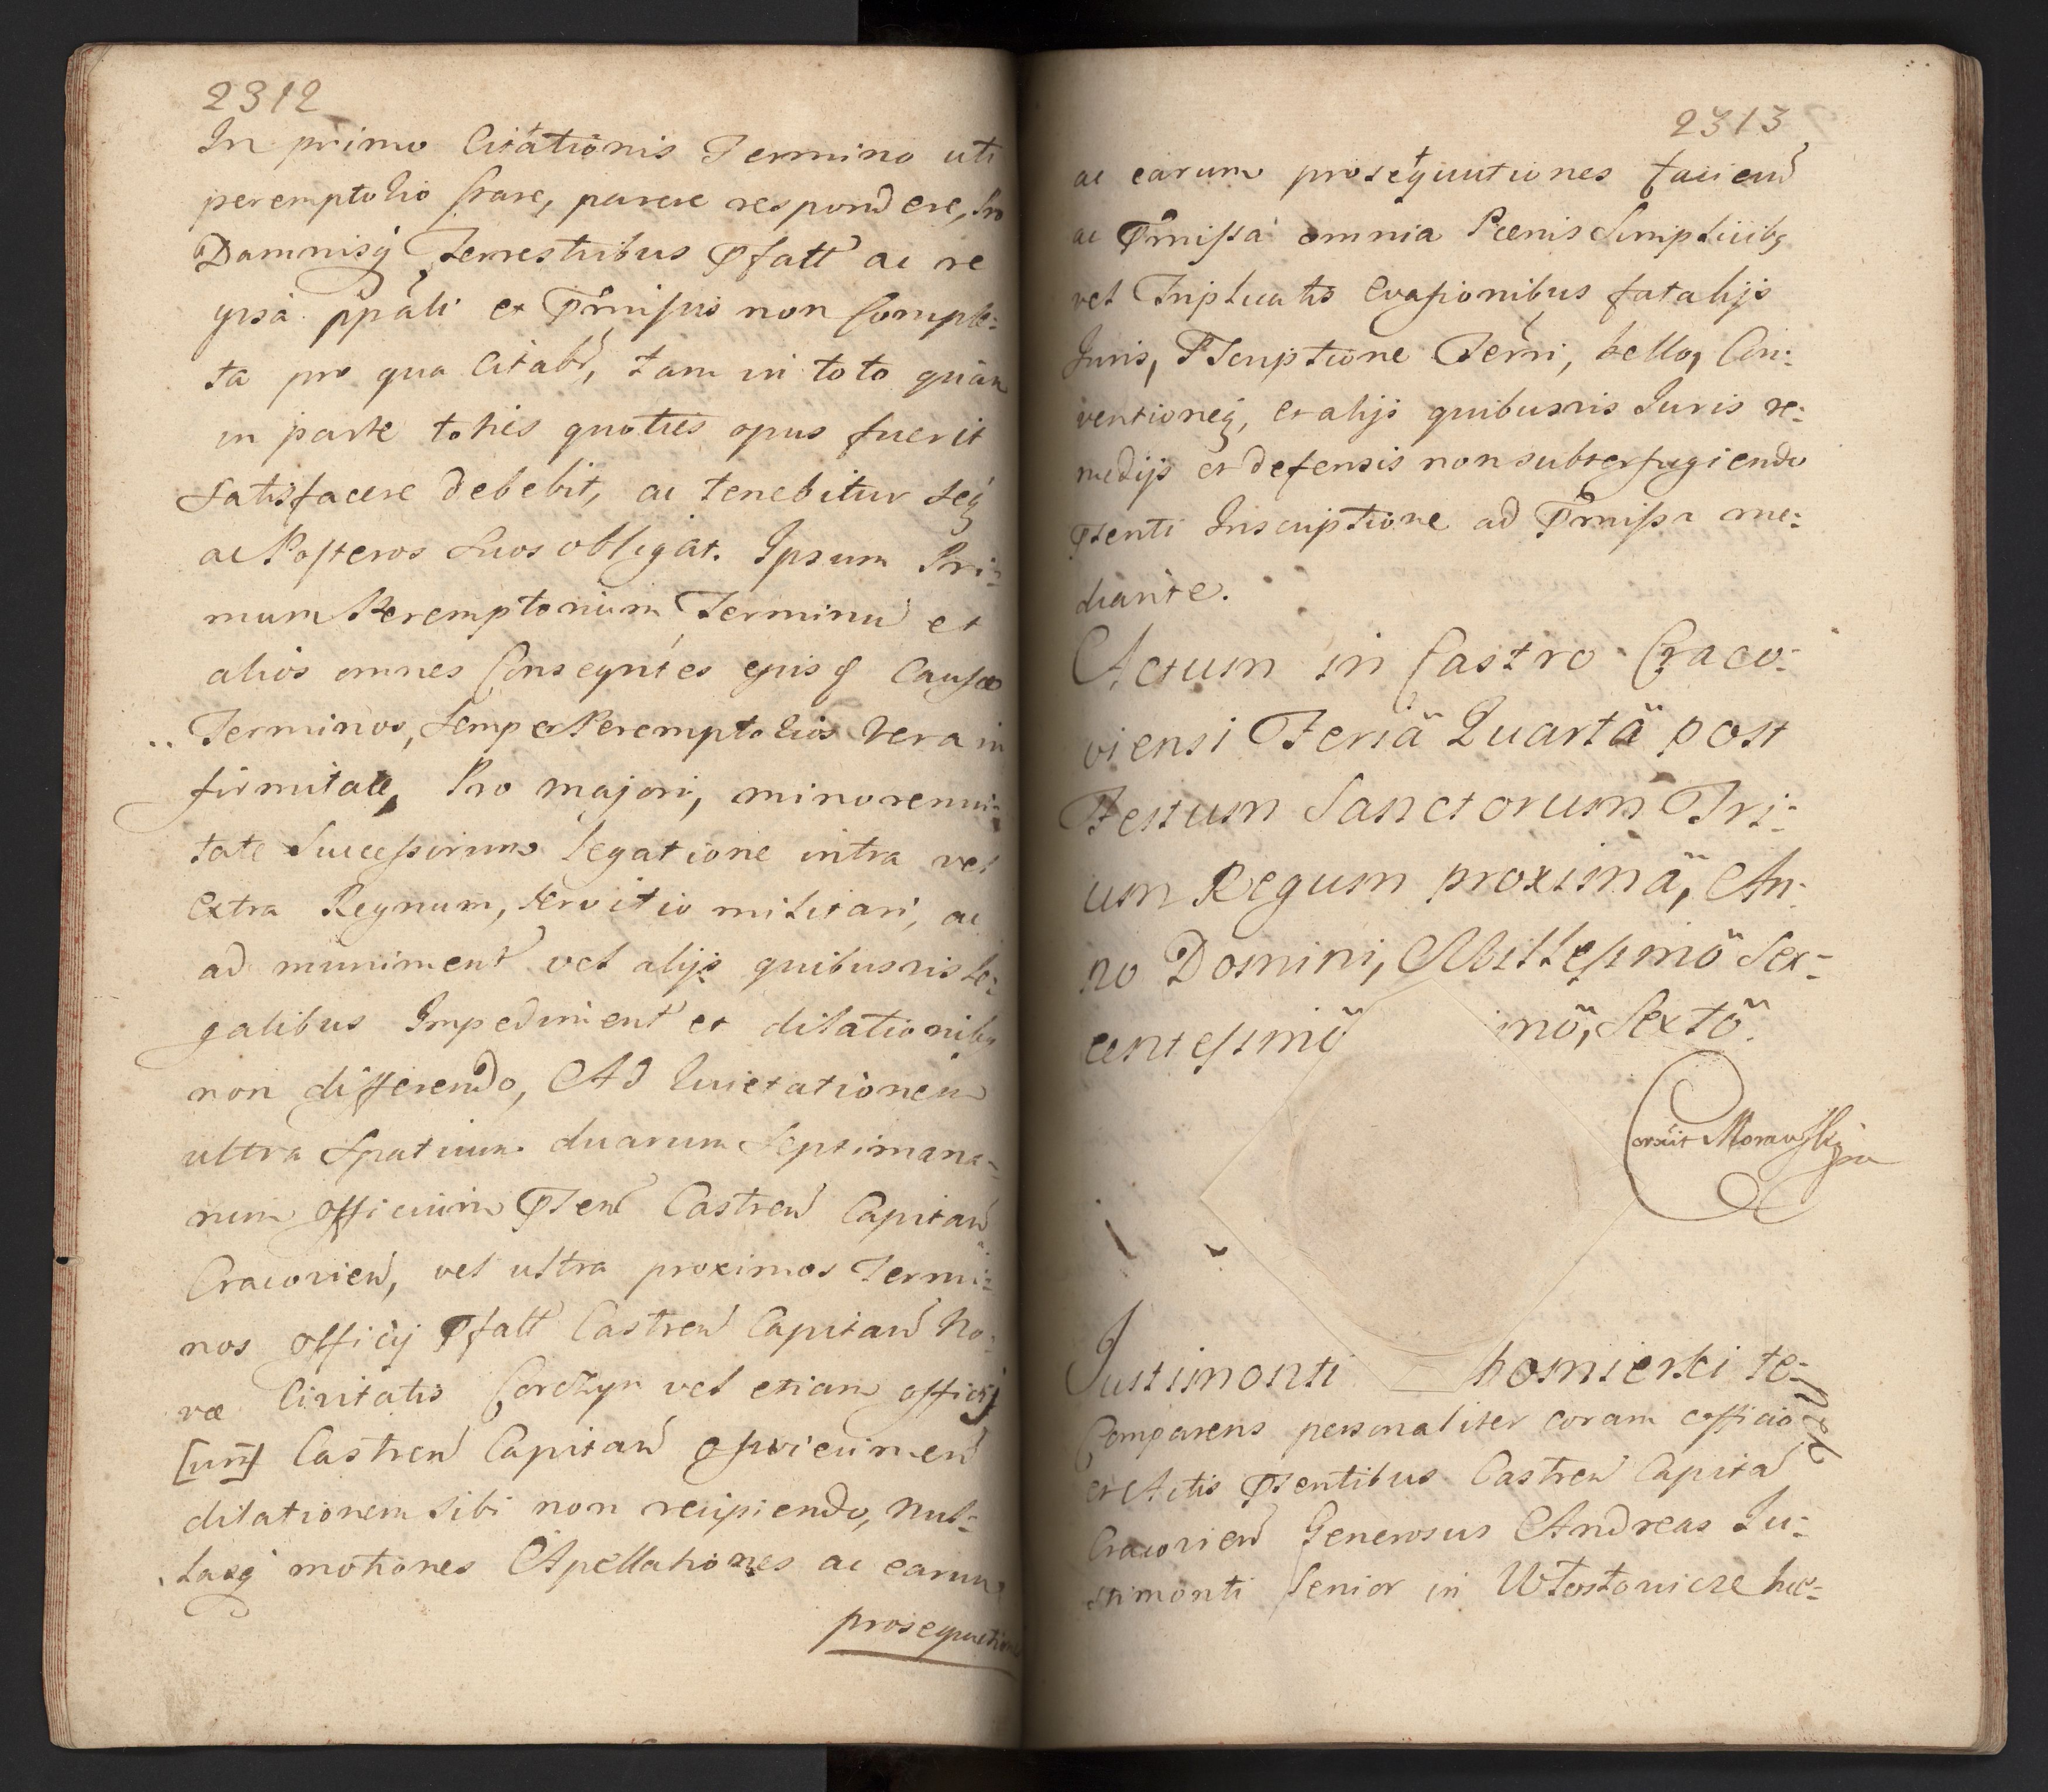 2312
In primo Citationis Termino uti
peremptorio stare, parere respondere, In
Damnisq Terrestribus Pfatt ac re
ipsa ppali et Pmissis non Comple-
ta pro qua Citabr, tam in toto quam
in parte toties quoties opus fuerit
satisfacere debebit, ac tenebitur seq
ac Posteros suos obligat. Ipsum Pri-
mum Peremptorium Terminu et
alios omnes Consequtes ejusq Causae
Terminos, semper Peremptorios Vera in
firmitate, Pro majori, minorenni-
tate Successivum legatione intra vel
Extra Regnum, servitio militari, ac
ad muniment vel alijs quibusvis le-
galibus Impediment et dilationibq
non differendo, Ad Quietationem
ultra Spatium duarum Septimana-
rum officium Psen Castren Capitan
Cracovien, vel ultra proximos Termi-
nos officij Pfatt Castren Capitan No-
vae Civitatis Corczyn vel etiam officij
[un] Castren Capitan Oswiecimen
dilationem sibi non recipiendo, nul-
lasq motiones Apellationes ac earum
prosequutiones
2313
ac earum prosequutiones faciend
ac Pmissa omnia Paenis Simplicibq
vel Triplicatis Evasionibus fatalijs
Juris, Pscriptione Terri, bello, Con-
ventioneq, et alijs quibusvis Juris re-
medijs et defensis non subterfugiendo
Psenti Inscriptione ad Pmissa me-
diante.
Actum in Castro Craco-
viensi Feria Quarta post
Festum Sanctorum Tri-
um Regum proxima, An-
no Domini, Millesimo Sex-
centesimo imo, Sexto.
Corexit Morawski mp
Justimonti homierski te-
stat
Comparens personaliter coram officio
et Actis Psentibus Castren Capita
Cracovien Generosus Andreas Ju-
stimonti Senior in Wtostowicze hae-